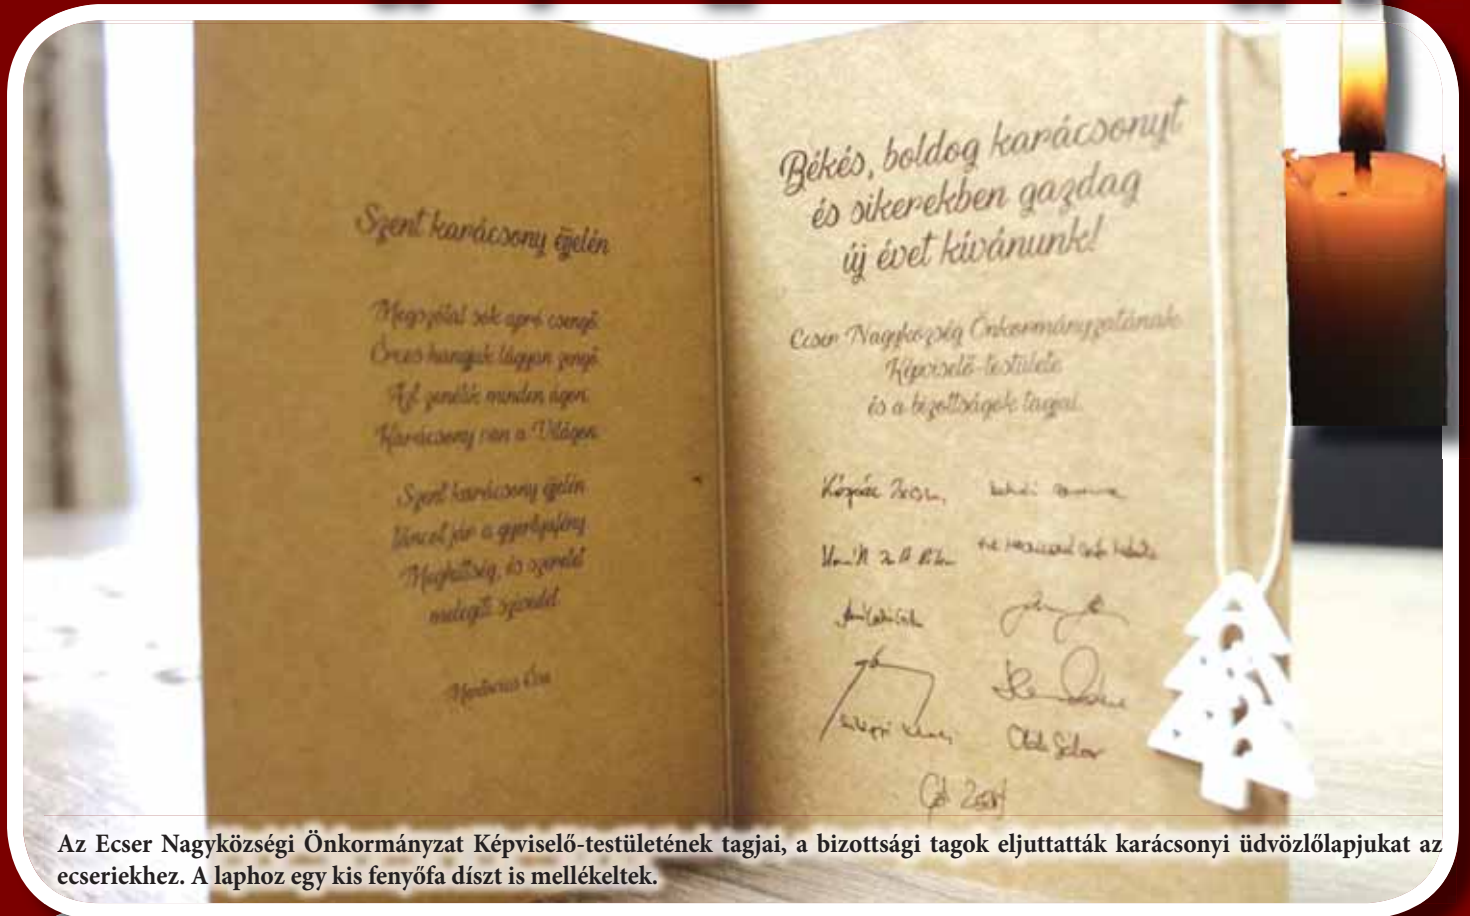 Szent karácsony éjjelén
Megszólal sok apró csengő.
Érces hangjuk lágyan zengő.
Azt zenélik minden ágon,
Karácsony van a Világon.
Szent karácsony éjjelén
táncot jár a gyertyafény.
Meghittség, és szeretet
melegíti szívedet.
Békés, boldog karácsonyt
és sikerekben gazdag
új évet kívánunk!
Ecser Nagyközség Önkormányzatának
Képviselő-testülete
és a bizottságok tagjai.
Az Ecser Nagyközségi Önkormányzat Képviselő-testületének tagjai, a bizottsági tagok eljuttatták karácsonyi üdvözlőlapjukat az
ecseriekhez. A laphoz egy kis fenyőfa díszt is mellékeltek.